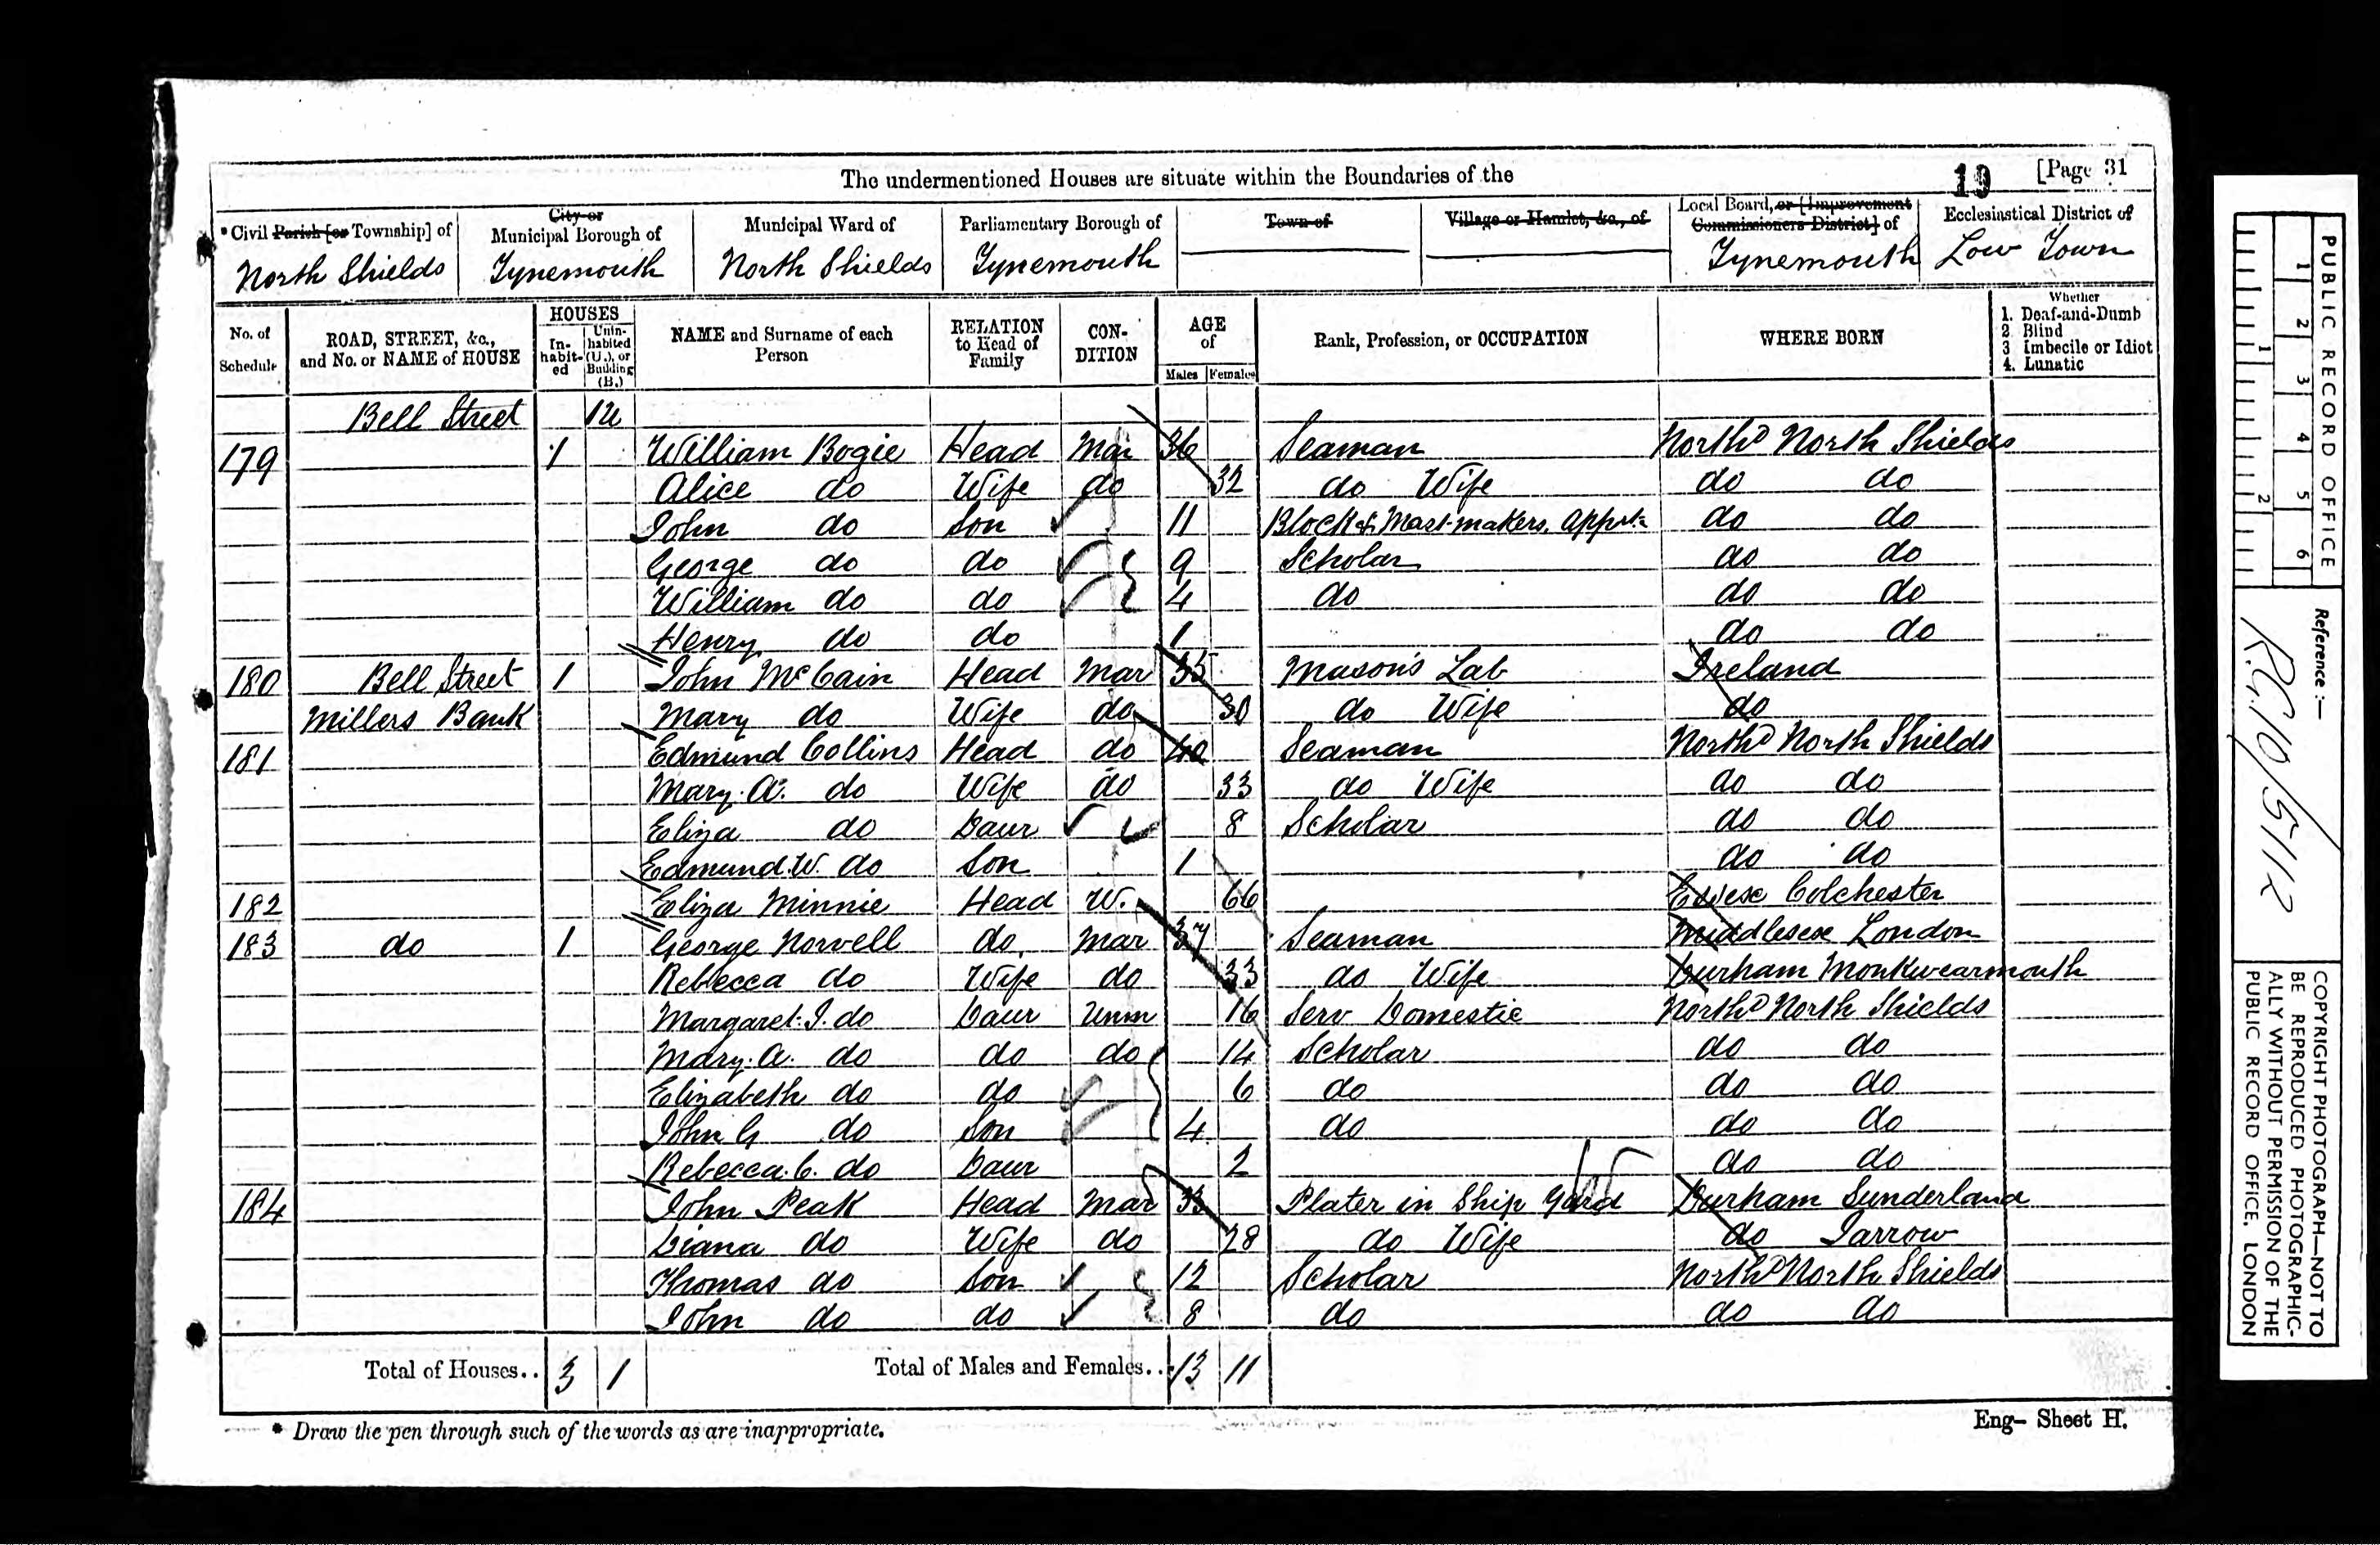 The undermentioned Houses are situate within the Boundaries of the
19 [Page 31
*Civil Parish [or Township] of
City or Municipal Borough of
Municipal Ward of
Parliamentary Borough of
Town of
Village or Hamlet, &c., of
Local Board, or [Improvement Commissioners District] of
Ecclesiastical District of
North Shields Tynemouth North Shields Tynemouth Tynemouth Low Town
No. of Schedule
ROAD, STREET, &c., and No. or NAME of HOUSE
HOUSES
In-habit-ed
Unin-habited (U.), or Building (B.)
NAME and Surname of each Person
RELATION to Head of Family
CON-DITION
AGE of
Males Females
Rank, Profession, or OCCUPATION
WHERE BORN
Whether
1. Deaf-and-Dumb
2 Blind
3 Imbecile or Idiot
4. Lunatic
Bell Street 1u
179 1 William Bogie Head Mar 36 Seaman Northd North Shields
Alice do Wife do 32 do Wife do do
John do Son 11 Block & Mast-makers. Apprte do do
George do do 9 Scholar do do
William do do 4 do do do
Henry do do 1 do do
180 Bell Street 1 John McCain Head Mar 35 Mason's Lab Ireland
Millers Bank Mary do Wife do 30 do Wife do
181 Edmund Collins Head do 40 Seaman Northd North Shields
Mary. A. do Wife do 33 do Wife do do
Eliza do Daur 8 Scholar do do
Edmund. W. do Son 1 do do
182 Eliza Minnie Head W. 66 Essex Colchester
183 do 1 George Norvell do. Mar 37 Seaman Middlesex London
Rebecca do Wife do 33 do Wife Durham Monkwearmouth
Margaret. I. do Daur Unm 16 Serv Domestic Northd North Shields
Mary. A. do do do 14 Scholar do do
Elizabeth do do 6 do do do
John G do Son 4 do do do
Rebecca. C. do Daur 2 do do
184 John Peak Head Mar 33 Plater in Ship Yard Durham Sunderland
Diana do Wife do 28 do Wife do Jarrow
Thomas do Son 12 Scholar Northd North Shields
John do do 8 do do do
Total of Houses.. 3 1 Total of Males and Females.. 13 11
* Draw the pen through such of the words as are inappropriate.
Eng— Sheet H.
PUBLIC RECORD OFFICE
1 2 3 4 5 6
1 2
Reference :—
R.G.10/5112
COPYRIGHT PHOTOGRAPH—NOT TO
BE REPRODUCED PHOTOGRAPHIC-
ALLY WITHOUT PERMISSION OF THE
PUBLIC RECORD OFFICE, LONDON